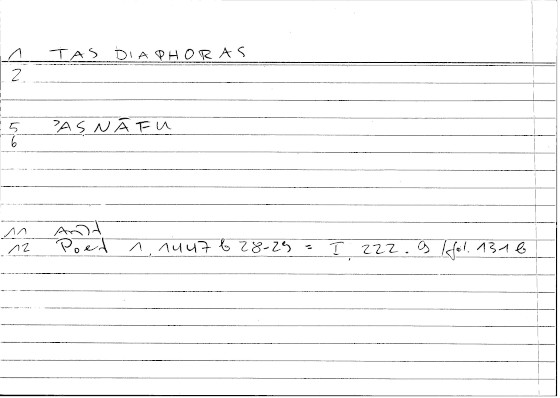 1 TAS DIAPHORAS
2
5 ʾASNĀFU
6
11 Arist
12 Poet 1, 1447 b 28-29 = I, 222. 9 / fol. 131 b